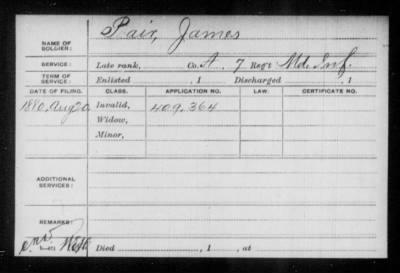 Pair, James
NAME OF SOLDIER:
SERVICE: Late rank, Co. A, 7 Reg't Md. Inf.
TERM OF SERVICE: Enlisted , 1 Discharged , 1
DATE OF FILING. CLASS. APPLICATION NO. LAW. CERTIFICATE NO.
1880, Aug 20 Invalid, 409.364
Widow,
Minor,
ADDITIONAL SERVICES:
REMARKS:
Died , 1 , at